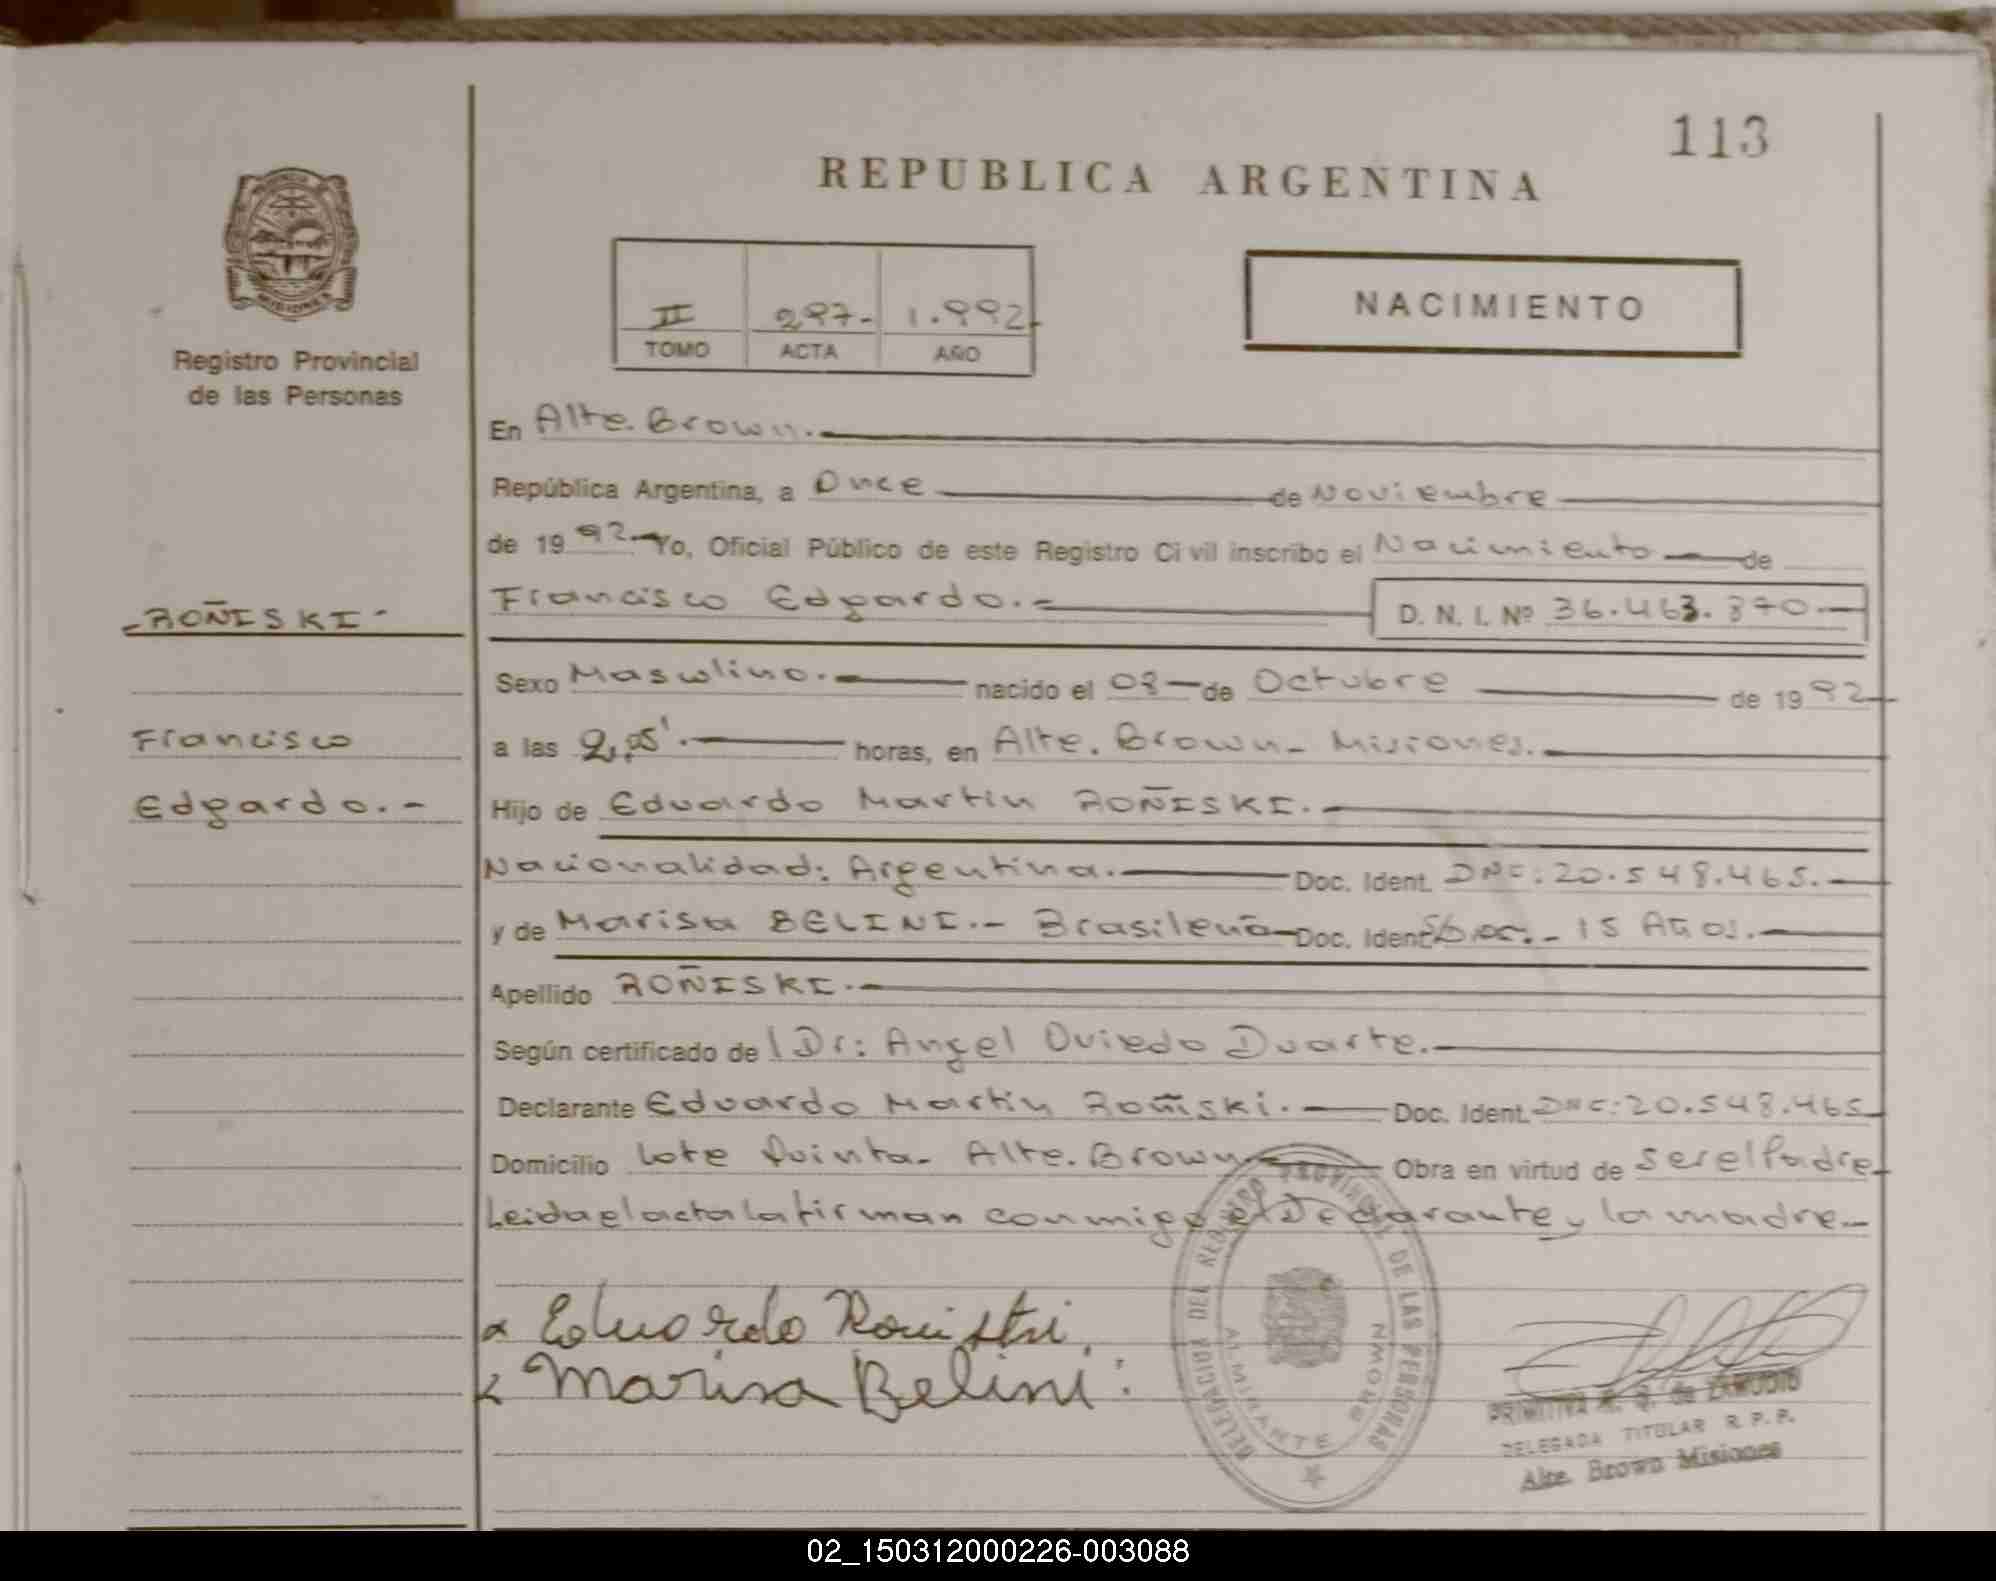 113
REPUBLICA ARGENTINA
MISIONES
Registro Provincial
de las Personas
II 297- 1.992-
TOMO ACTA AÑO
NACIMIENTO
En Alte. Brown.-
República Argentina, a Once de Noviembre
de 1992.- Yo, Oficial Público de este Registro Civil inscribo el Nacimiento de
-ROÑISKI-
Francisco Edgardo.- D. N. I. Nº 36.463.370.-
Sexo Masculino.- nacido el 08 - de Octubre de 1992-
Francisco
a las 2,05'.- horas, en Alte. Brown - Misiones.-
Edgardo.-
Hijo de Eduardo Martin ROÑISKI.-
Nacionalidad: Argentina.- Doc. Ident. DNI: 20.548.465.-
y de Marisa BELINI.- Brasileña - Doc. Ident. 15 Años.-
Apellido ROÑISKI.-
Según certificado de l Dr: Angel Oviedo Duarte.-
Declarante Eduardo Martin Roñiski.- Doc. Ident. DNI: 20.548.465-
Domicilio Lote Quinta - Alte. Brown - Obra en virtud de ser el Padre-
Leida el acta la firman conmigo el Declarante y la madre.-
x Eduardo Roniski.
x Marisa Belini.
DELEGACIA DEL REGISTRO PROVINCIAL DE LAS PERSONAS
ALMIRANTE BROWN
PRIMITIVA de ZAMUDIO
DELEGADA TITULAR R. P. P.
Alte. Brown Misiones
02_150312000226-003088